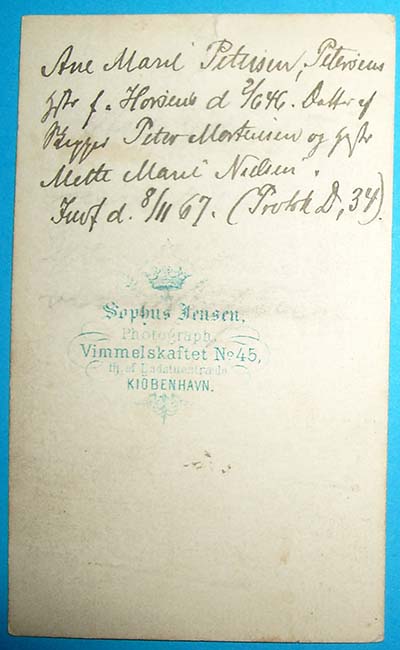 Ane Marie Petersen, Petersens
Hstr f. Horsens d 2/6 46. Datter af
Skipper Peter Mortensen og Hstr
Mette Marie Nielsen.
d. 8/11 67. (Protok D, 34).
Sophus Jensen,
Photograph.
Vimmelskaftet No 45,
Hj. af Badstuestræde
KIÖBENHAVN.